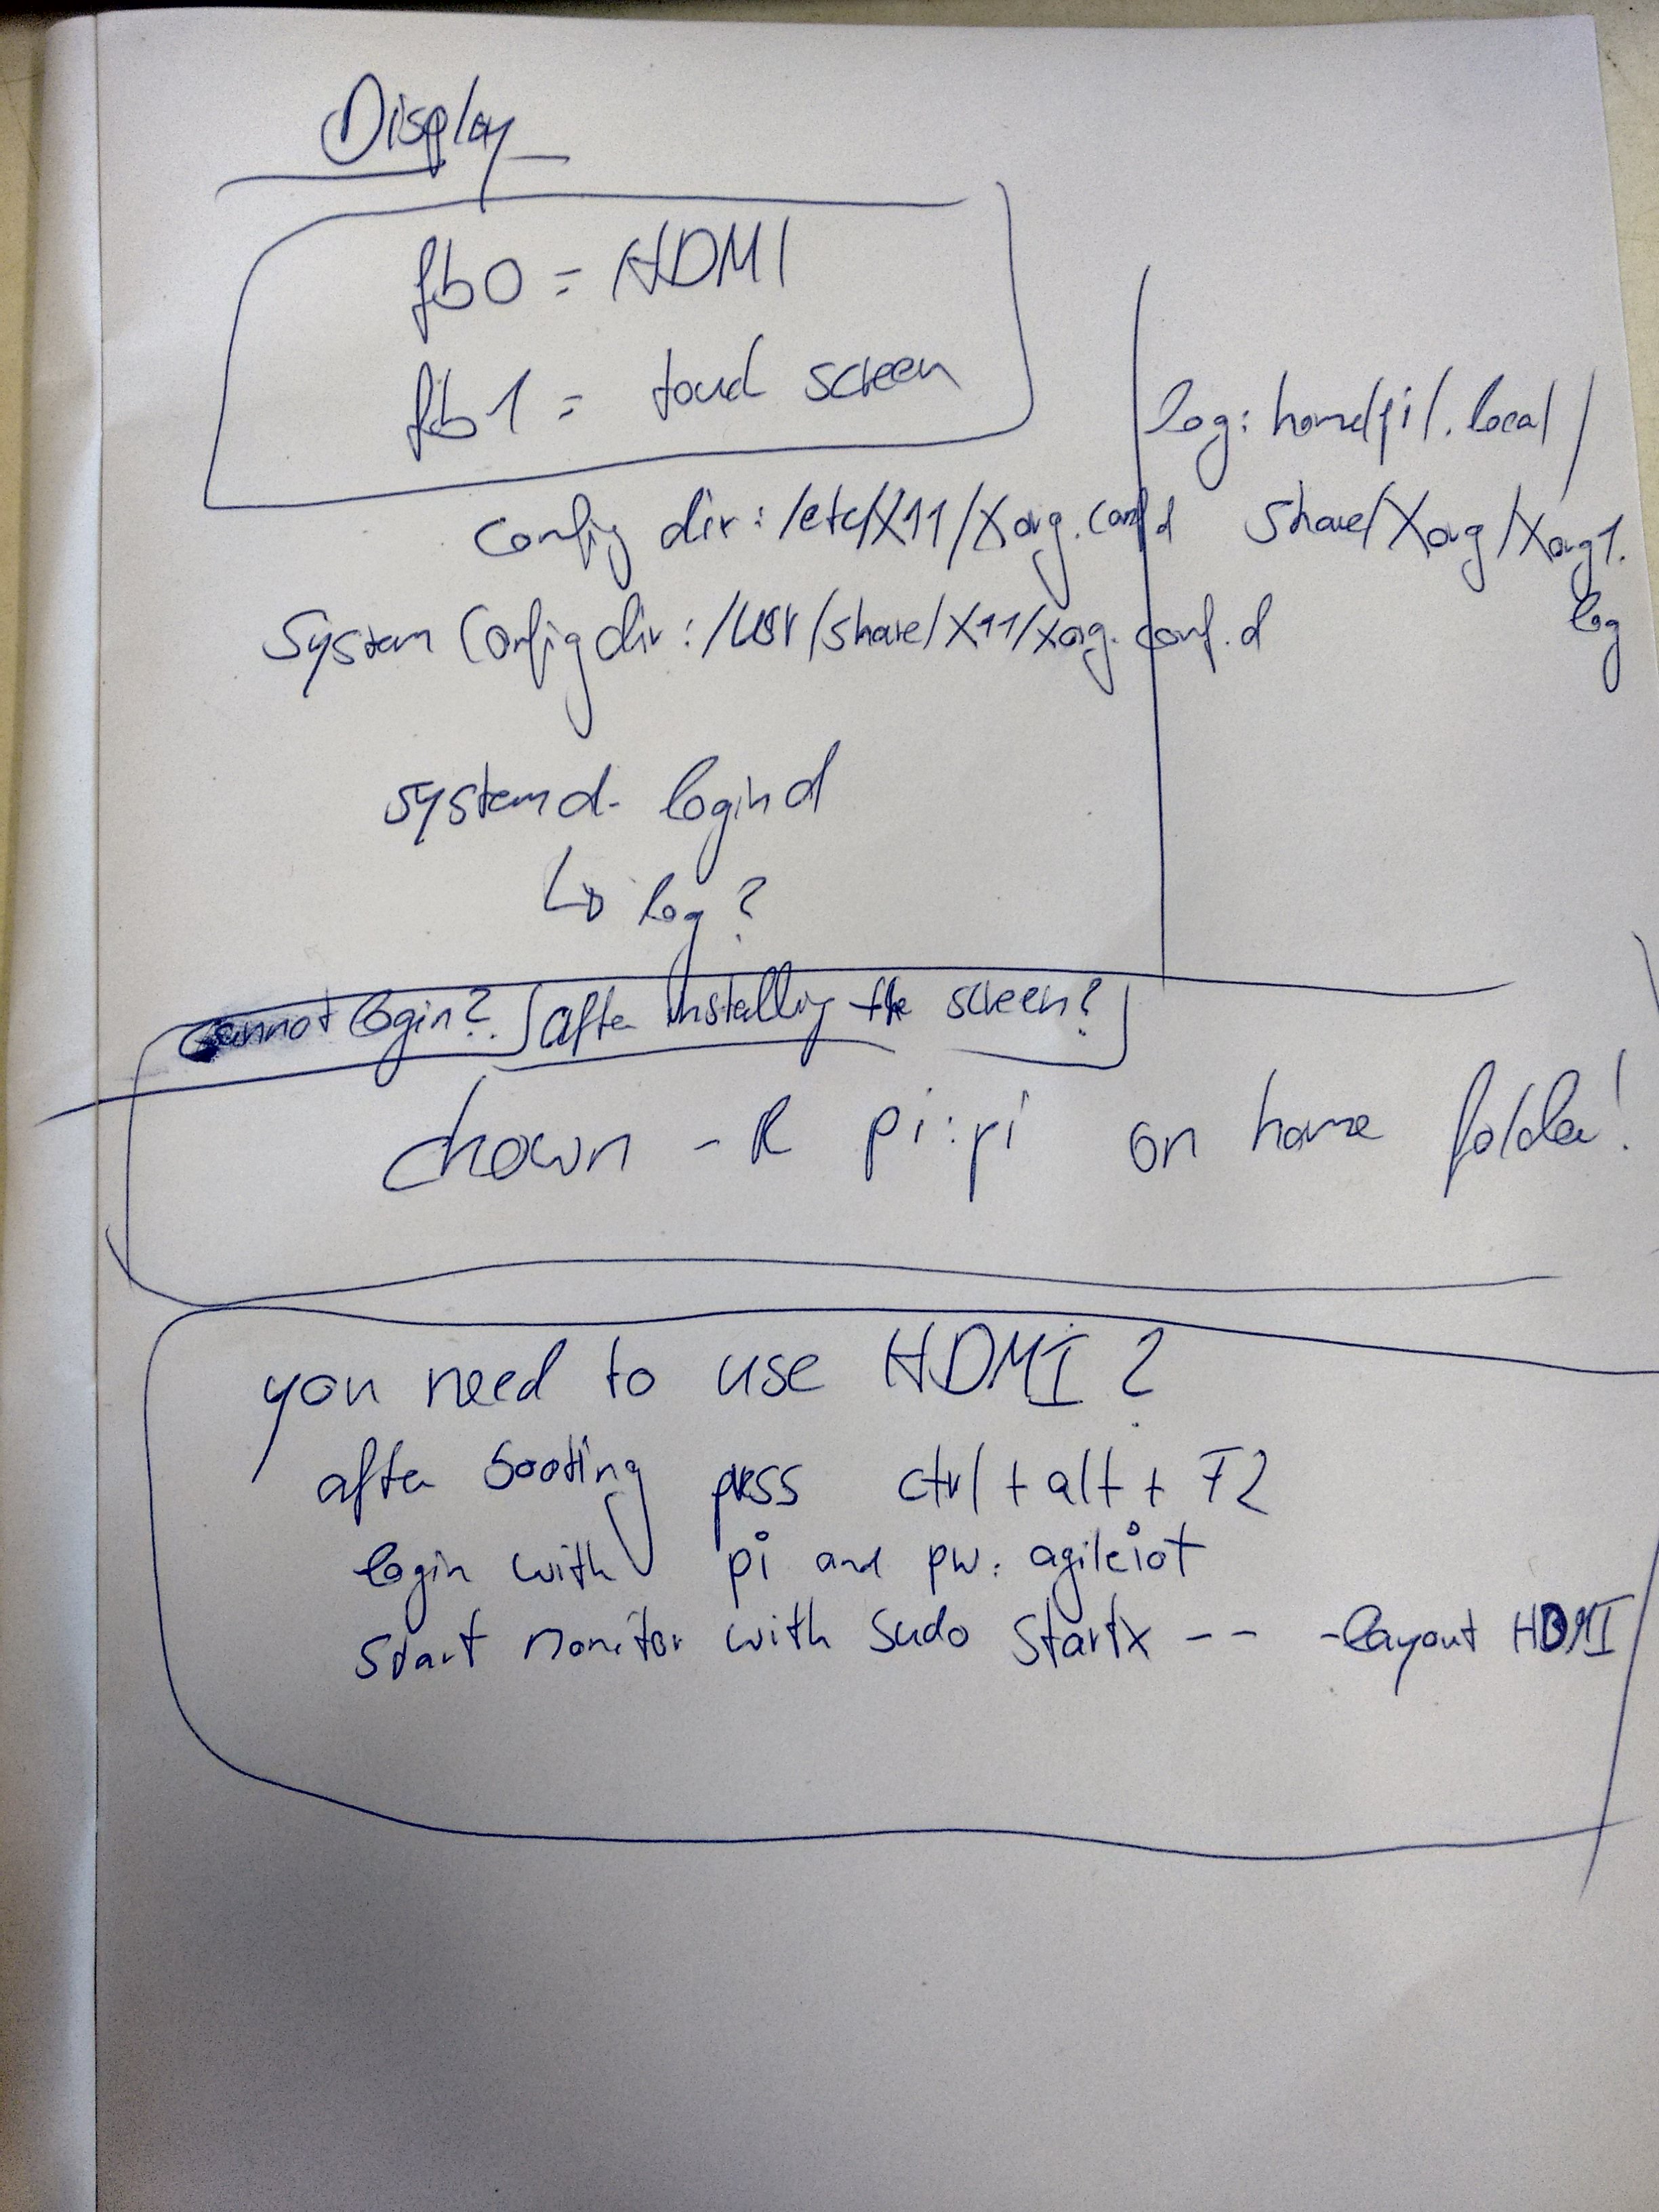 Display
fb0 = HDMI
fb1 = touch screen
config dir: /etc/X11/xorg.conf.d
System Config dir: /usr/share/X11/xorg.conf.d
log: home/pi/.local/
share/Xorg/Xorg1.
log
systemd-logind
↳ log?
cannot login? [after installing the screen?]
chown -R pi:pi on home folder!
you need to use HDMI?
after booting press ctrl + alt + F2
login with pi and pw: agileiot
start monitor with sudo startx -- -layout HDMI